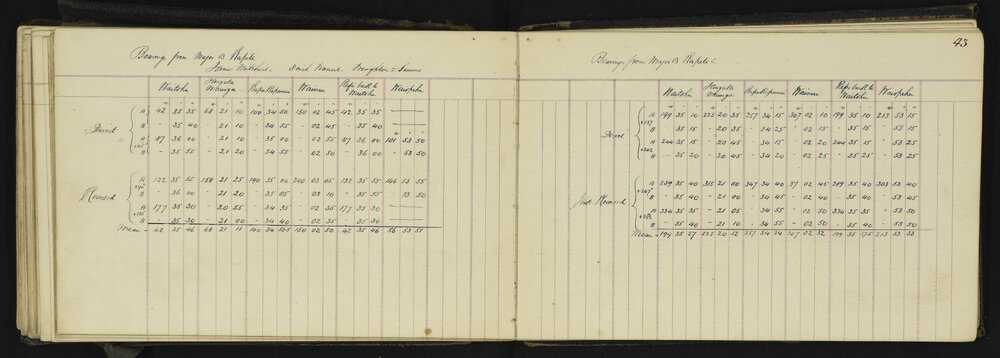 43
Bearings from Major △ Kapiti
Waitohu 68 Wainui Refn back to Waitohu Waopehu
Direct { A 42 35 35 68 21 10 100 34 50 150 02 45 42 35 35
B - 35 40 - 21 10 - 34 55 - 02 45 - 35 40
A 87 36 00 - 21 10 - 35 00 - 02 55 87 36 00 101 53 50
+45°
B - 35 55 - 21 20 - 34 55 - 02 50 - 36 00 - 53 50
Reversed { A 132 35 55 158 21 25 190 35 00 240 03 05 132 35 55 146 53 55
+90°
B - 36 00 - 21 20 - 35 05 - 03 10 - 35 55 - 53 50
A 177 35 30 - 20 55 - 34 35 - 02 55 177 35 30
+135
B - 35 30 - 21 00 - 34 40 - 02 35 - 35 30
Mean = 42 35 46 68 21 11 100 34 52.5 150 02 50 42 35 46 56 53 51
Bearings from Major △ Kapiti
Waitohu Wainui Refn back to Waitohu Waopehu
Direct { A 199 35 10 225 20 35 257 34 15 307 02 10 199 35 10 213 53 15
+157
B 35 15 - 20 35 - 34 25 - 02 15 - 35 15 - 53 15
A 244 35 15 - 20 45 - 34 15 - 02 20 244 35 15 - 53 25
+202
B - 35 20 - 20 45 - 34 20 - 02 25 - 35 25 - 53 25
Inst Reversed { A 289 35 40 315 21 00 347 34 40 37 02 45 289 35 40 303 53 40
+247
B - 35 40 - 21 00 - 34 45 - 02 40 - 35 40 - 53 45
A 334 35 35 - 21 05 - 34 55 - 02 50 334 35 35 - 53 50
+292
B - 35 40 - 21 10 - 34 55 - 02 50 - 35 40 - 53 50
Mean = 199 35 27 225 20 52 257 34 34 307 02 32 199 35 27.5 213 53 33